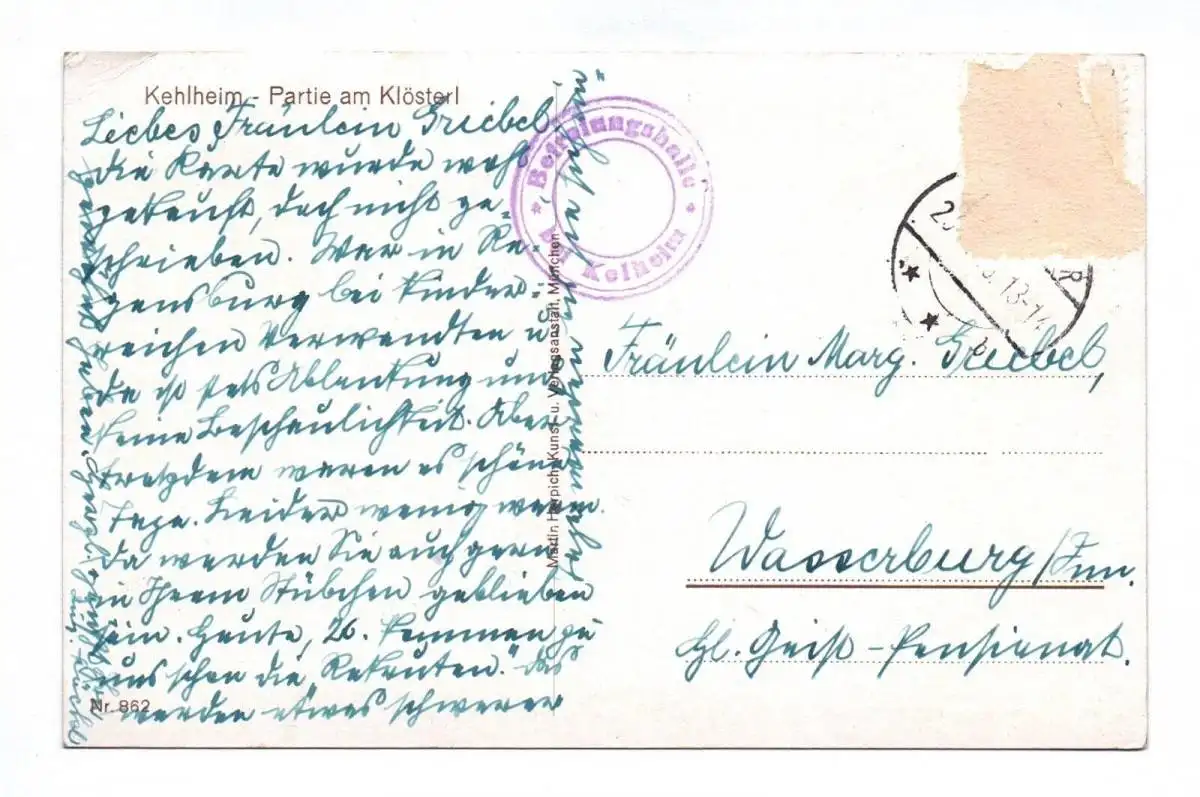 Kehlheim - Partie am Klösterl
Liebes Fräulein Griebel
die Karte wurde wohl
gekauft, doch nicht ge-
schrieben. War in Re-
gensburg bei kinder-
reichen Verwandten u.
da ist stets Ablenkung und
keine Beschaulichkeit. Aber
trotzdem waren es schöne
Tage. Leider wenig warm.
Da werden Sie auch gern
in Ihrem Stübchen geblieben
sein. Heute, 26. kommen zu
uns schon die Rekruten." Das
werden etwas schwerer
Nr. 862
Martin Herpich, Kunst- u. Verlagsanstalt, München
* Befreiungshalle *
bei Kelheim
13-14
Fräulein Marg. Griebel,
Wasserburg/Inn.
Hl. Geist-Pensionat.